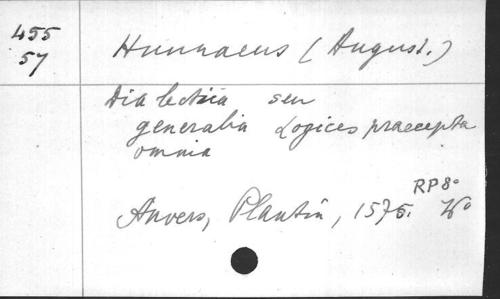 455
57
Hunnaeus (August.)
Dialectica seu
generalia Logices praecepta
omnia
RP 8°
Anvers, Plantin, 1575.